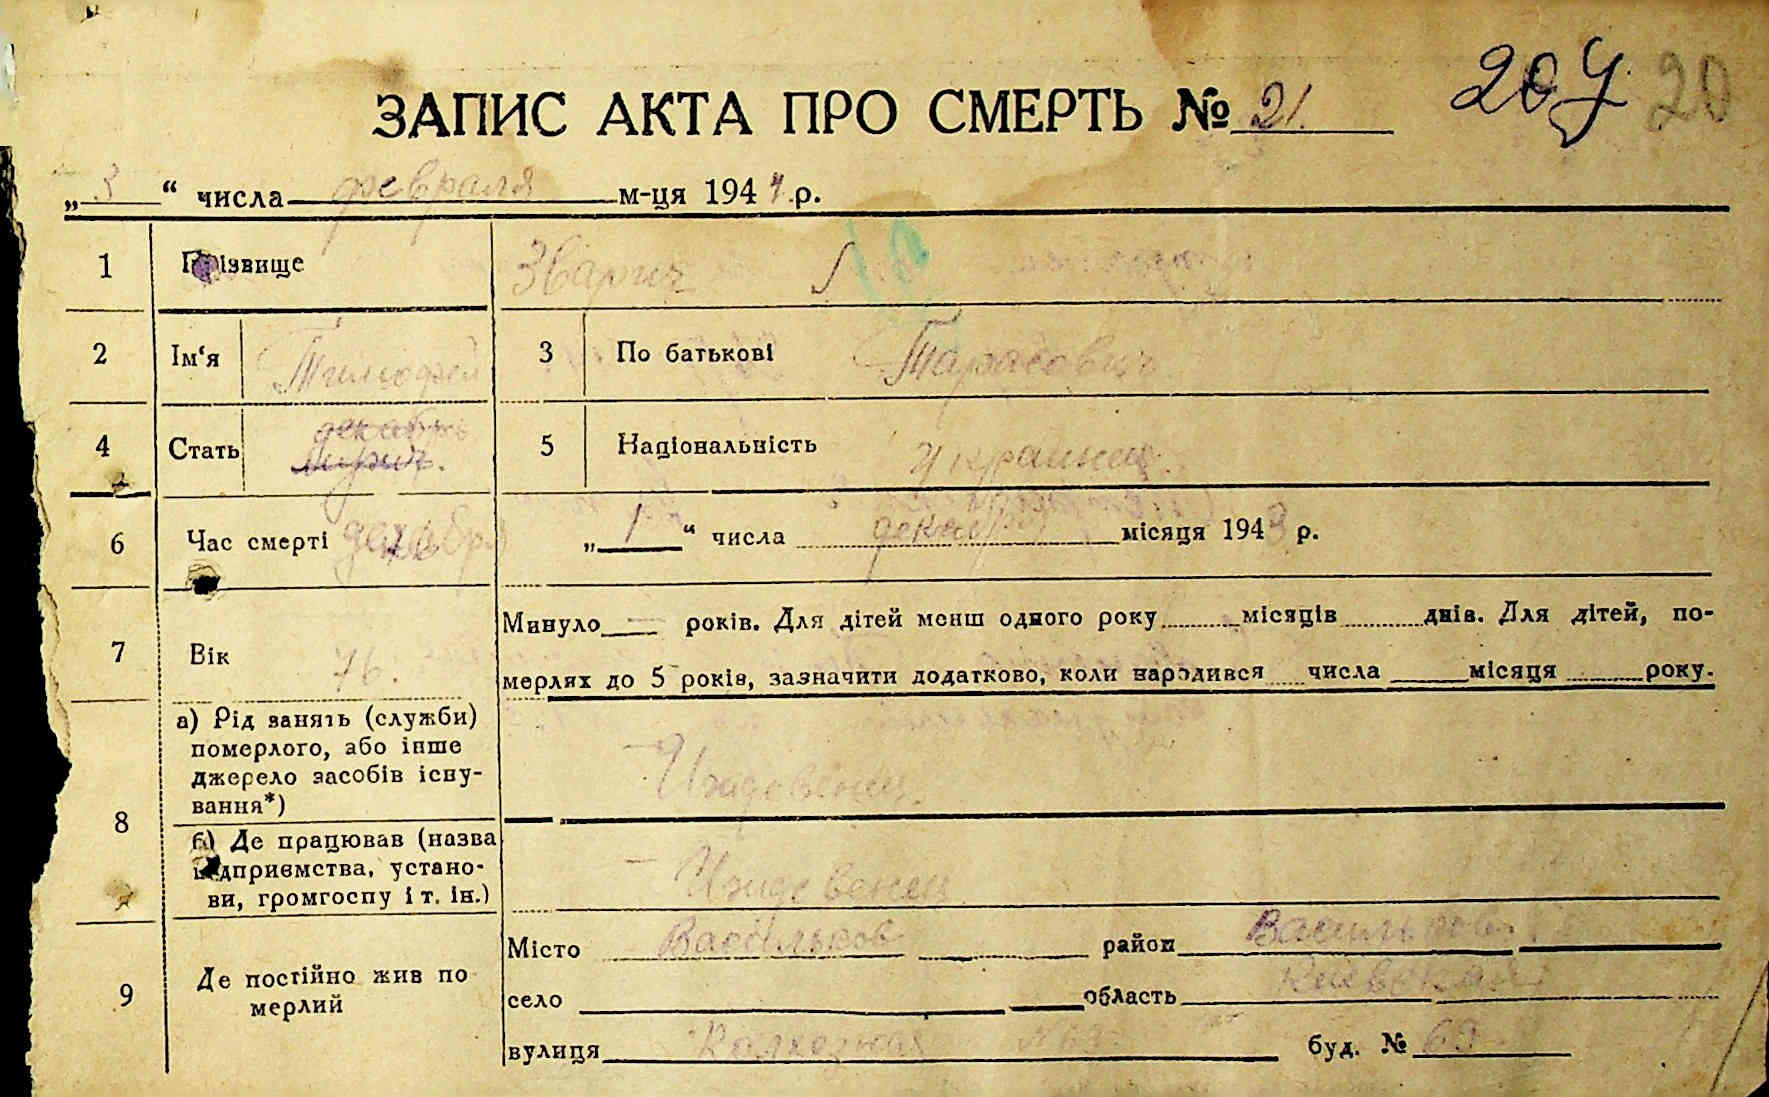 20
ЗАПИС АКТА ПРО СМЕРТЬ № 21.
„ 3 “ числа февраля м-ця 1944 р.
1 Прізвище Зварич
2 Ім‘я Тимофей 3 По батькові Тарасович
4 Стать декабрь 5 Національність Украинец.
6 Час смерті декабря „ 1 “ числа декабря місяця 1943 р.
7 Вік 76. Минуло — років. Для дітей менш одного року місяців днів. Для дітей, по-
мерлих до 5 років, зазначити додатково, коли народився числа місяця року.
8 а) Рід занять (служби)
померлого, або інше
джерело засобів існу-
вання*) — Иждовенец.
б) Де працював (назва
підприємства, устано-
ви, громгоспу і т. ін.) — Иждовенец
9 Де постійно жив по
мерлий
Місто Васильков район Васильков.
село область Киевская
вулиця Колхозная № 63 буд. № 63